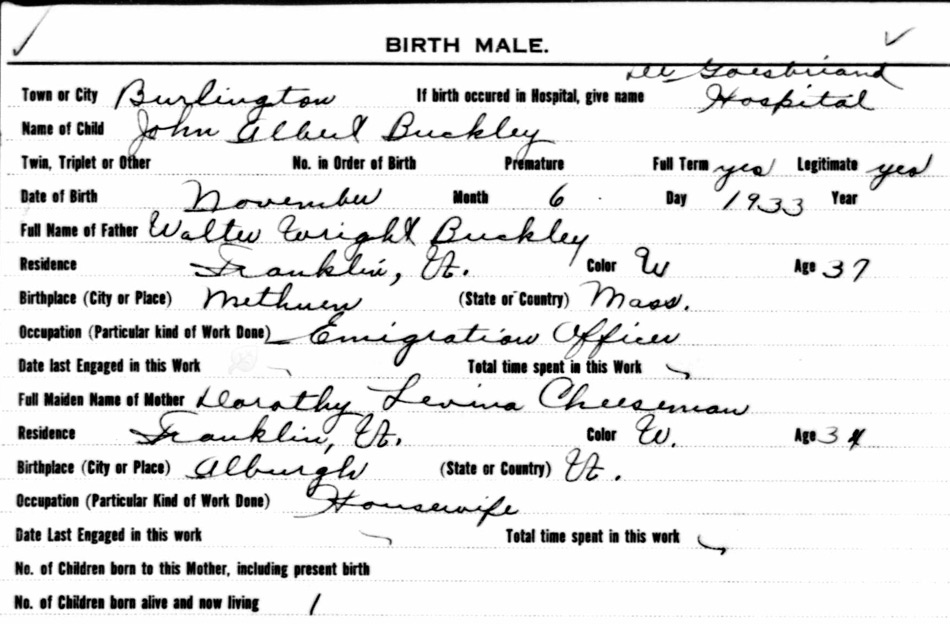 BIRTH MALE.
De Goesbriand
Town or City Burlington If birth occured in Hospital, give name Hospital
Name of Child John Albert Buckley
Twin, Triplet or Other No. in Order of Birth Premature Full Term yes Legitimate yes
Date of Birth November Month 6 Day 1933 Year
Full Name of Father Walter Wright Buckley
Residence Franklin, Vt. Color W Age 37
Birthplace (City or Place) Methuen (State or Country) Mass.
Occupation (Particular kind of Work Done) Emigration Officer
Date last Engaged in this Work Total time spent in this Work
Full Maiden Name of Mother Dorothy Levina Cheeseman
Residence Franklin, Vt. Color W. Age 34
Birthplace (City or Place) Alburgh (State or Country) Vt.
Occupation (Particular Kind of Work Done) Housewife
Date Last Engaged in this work Total time spent in this work
No. of Children born to this Mother, including present birth
No. of Children born alive and now living 1